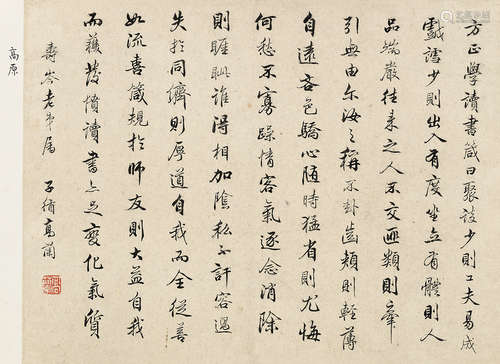 方正學讀書箴曰聚談少則工夫易成
戲謔少則出入有度坐立有體則人
品端嚴往來之人不交匪類則牽
引無由尔汝之稱不卦齒頰則輕薄
自遠吝色驕心隨時猛省則尤悔
何愁不寡躁情客氣逐念消除
則睚眦誰得相加陰私不訐容過
失於同儕則厚道自我而全從善
如流喜箴規於師友則大益自我
而獲發憤讀書亦足變化氣質
壽岑老弟屬
子循高蘭
高原